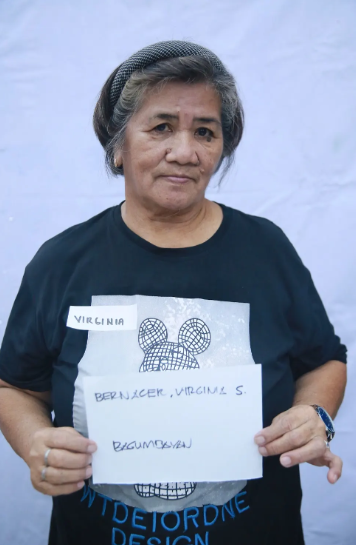 VIRGINIA
BERNACER, VIRGINIA S.
BAGUMBAYAN
WTDETORDNE
DESIGN